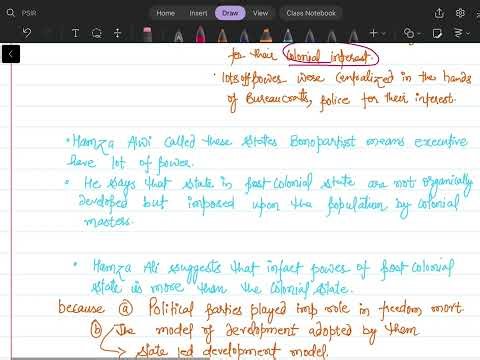 PSIR
Home Insert Draw View Class Notebook
for their Colonial interest.
• lots of powers were centralized in the hands
of Bureaucrats, police for their interest.
• Hamza Alvi called these states Bonopartist means executive
have lot of power.
• He says that state in post colonial state are not organically
developed but imposed upon the population by colonial
masters.
• Hamza Ali suggests that infact power of post colonial
state is more than the colonial state.
because (a) Political parties played imp role in freedom mort.
(b) The model of development adopted by them
→ state led development model.